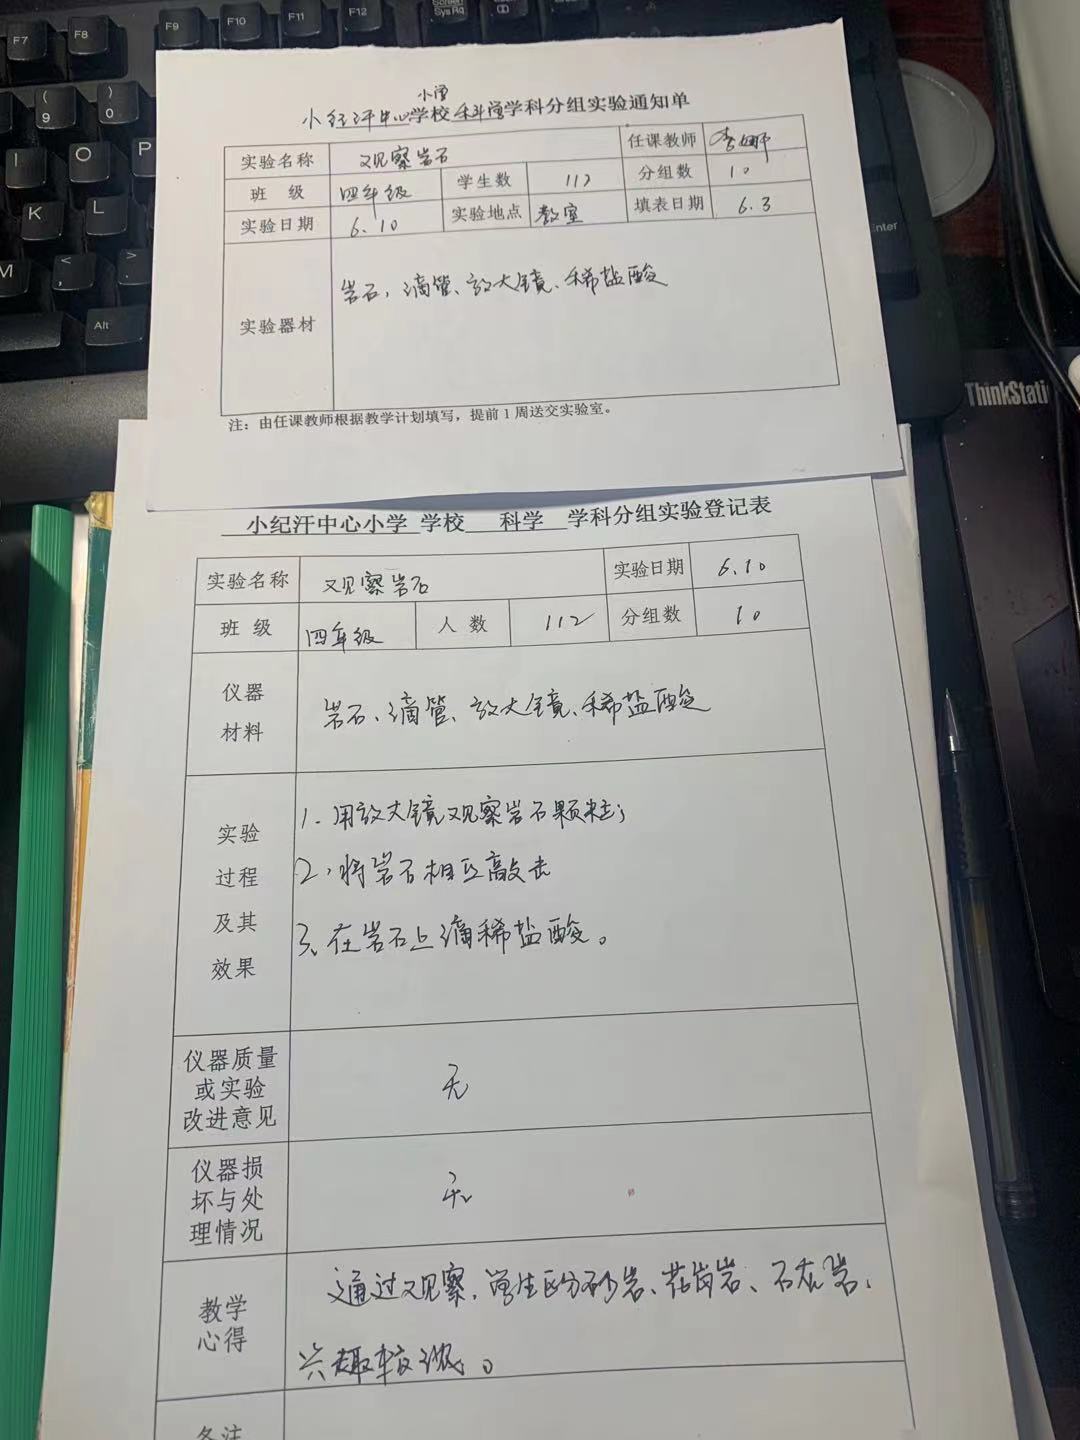 F7 F8 F9 F10 F11 F12 Screen SysRq
( 9 ) 0
I O P
K L : ;
M < , > .
Alt
Enter
ThinkStati
小学
小纪汗中心学校科学学科分组实验通知单
实验名称 观察岩石 任课教师 李娜
班 级 四年级 学生数 112 分组数 10
实验日期 6.10 实验地点 教室 填表日期 6.3
实验器材 岩石、滴管、放大镜、稀盐酸
注：由任课教师根据教学计划填写，提前1周送交实验室。
小纪汗中心小学 学校 科学 学科分组实验登记表
实验名称 观察岩石 实验日期 6.10
班 级 四年级 人 数 112 分组数 10
仪器
材料
岩石、滴管、放大镜、稀盐酸
实验
过程
及其
效果
1、用放大镜观察岩石颗粒；
2、将岩石相互敲击
3、在岩石上滴稀盐酸。
仪器质量
或实验
改进意见
无
仪器损
坏与处
理情况
无
教学
心得
通过观察，学生区分砂岩、花岗岩、石灰岩，
兴趣较浓。
备注